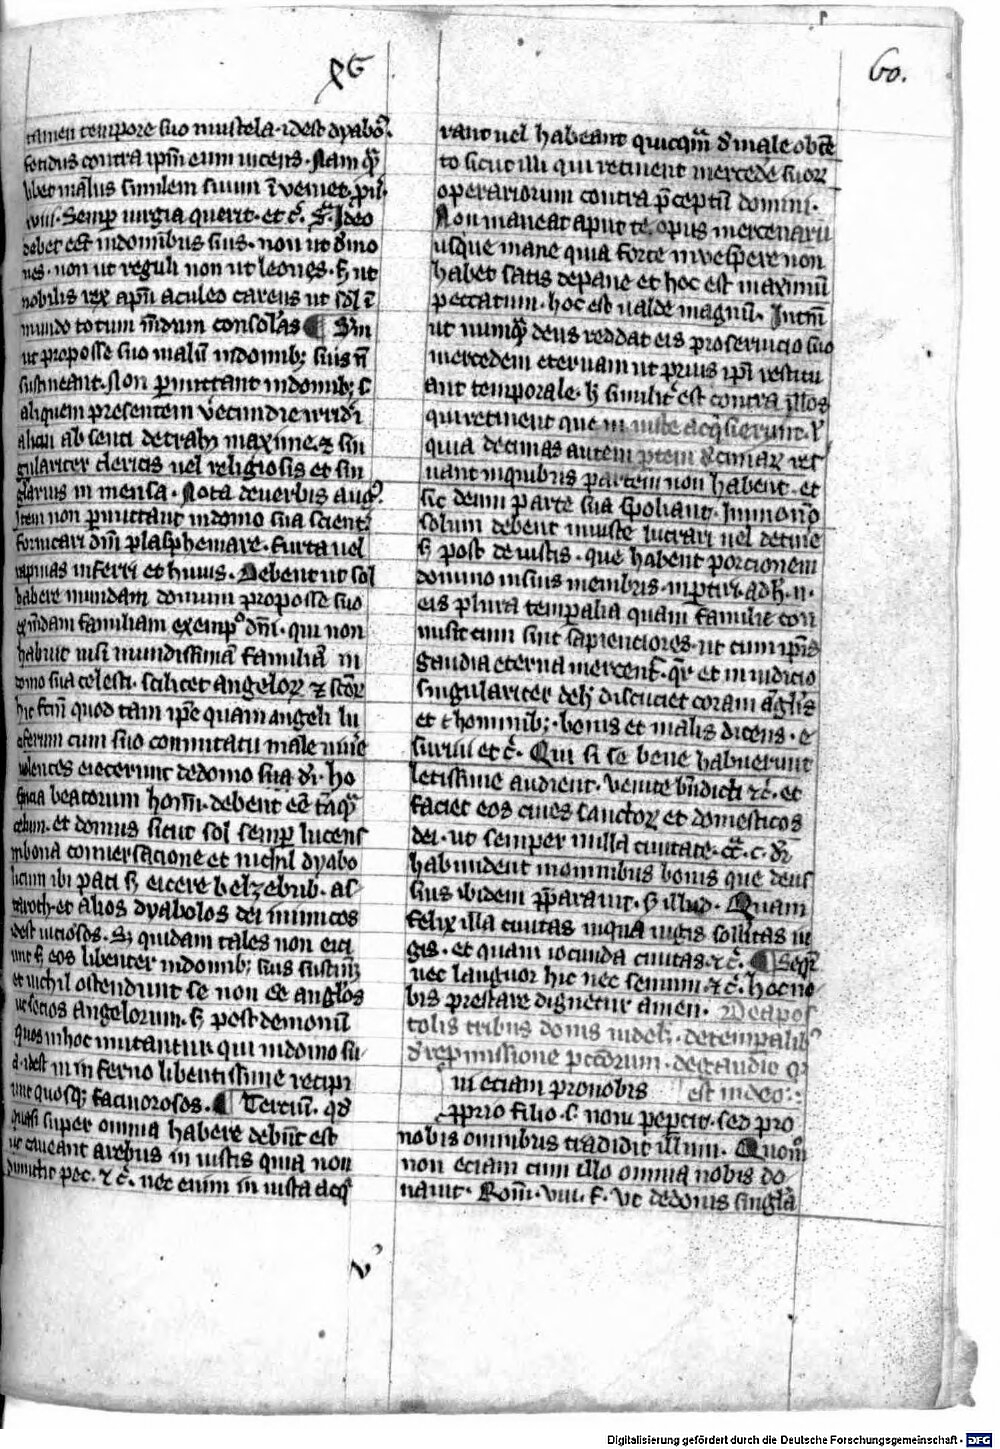 xG
60.
tamen tempore suo mustela. idest dyabo᷒.
fetidus contra ip̄m eum uicens. Nam q̄
libet malus similem suum īveniet. pu᷒.
xviii. Semp̄ iurgia querit. et c̄. S. Ideo
debet eē̄ in domibus suis. non ut dmo
nes. non ut reguli non ut leones. s; ut
nobilis rex apū aculeo carens ut sol ī
mundo totum m̄dum consolās ¶ Sm̄
ut proposse suo malū in domib; suis n̄
sustineant. Non p̄mittant in domib; s
aliquem presentem vecundie irridi
alicui absenti detrahi maxime. ⁊ sin
gulariter clericis uel religiosis et sin
glarius in mensa. Nota de uerbis aug᷒.
Item non p̄mittant in domo sua scient᷒
fornicari dm̄ plasphemare. furta uel
rapinas inferri et huius. Debent ut sol
habere mundam domum proposse suo
qm̄dam familiam exemp᷒ dn̄i. qui non
habuit nisi mundissimā familiā in
domo sua celesti. scilicet angeloꝝ ⁊ sc̄oꝝ
hic fcm̄ quod tam ip̄e quam angeli lu
ciferum cum suo comitatu male uiuē
uolentes eiecerunt de domo sua dr̄. ho
spicia beatorum hoīm. debent eē tāq̄
celum. et domus sicut sol semp̄ lucens
in bona conuersacione et nichil dyabo
licum ibi pati s; eicere belzebub. as
taroth. et alios dyabolos dei inimicos
idest uiciosos. S; quidam tales non eici
unt s; eos libenter in domib; suis sustin̄t
et nichil ostendunt se non eē anglos
ut socios angelorum. s; post demonū
quos in hoc imitantur qui in domo su
a. idest in inferno libentissime recipi
unt quosq; facinorosos. ¶ Tercm̄. qd
quasi super omnia habere debn̄t est
ut caueant a rebus in iustis quia non
dimittit pec. ⁊ c̄. nec enim in iusta acq̄
rant uel habeant quicq̄m d male obtē
to sicut illi qui retinent mercedē suoꝝ
operariorum contra p̄ceptū domini.
Non maneat aput te. opus mercenarii
usque mane quia forte in vespere non
habet satis de pane et hoc est maximū
peccatum. hoc est ualde magnū. Intm̄
ut numq̄ deus reddat eis pro seruicio suo
mercedem eternam ut prius ip̄i restitu
ant temporale. h; similit᷒ est contra illos
qui retinent que in iuste acq̄sierunt. ⁊
quia decimas autem p̄tem decimaꝝ res᷒
uant in quibus partem non habent. et
sic deum parte sua spoliant. Immo nō
solum debent iniuste lucrari uel detinē
s; post de iustis. que habent porcionem
domino in suis membris. impartiri. ad h̄. n.
eis plura temp̄alia quam familie con
misit cum sint sapienciores. ut cum ip̄is
gaudia eterna mercent᷒. q̄r et in iudicio
singulariter deh̄ discuciet coram āglis
et hominib;. bonis et malis dicens. e
suriui et c̄. Qui si se bene habuerunt
letissime audient. venite bn̄dicti ⁊c̄. et
faciet eos ciues sanctoꝝ et domesticos
dei. ut semper in illa ciuitate.
habundent in omnibus bonis que deus
suis ibidem p̄parauit. s; illud. Quam
felix illa ciuitas in qua iugis sol̄litas iu
gis. et quam iocunda ciuitas. ⁊ c̄. ¶ Seq̄r
nec languor hic nec senium. ⁊ c̄. hoc no
bis prestare dignetur amen. De apos
tolis tribus donis uideꝉ. de temp̄alib᷒
d rep̄missione pcc̄orum. de gaudio q̄
in eciam pro nobis est in deo.
p̄prio filio. s. non pepcit. sed pro
nobis omnibus tradidit illum. Quom̄
non eciam cum illo omnia nobis do
nauit. Rom̄. viii. f. Ut de donis singl̄a
v᷒
Digitalisierung gefördert durch die Deutsche Forschungsgemeinschaft - DFG